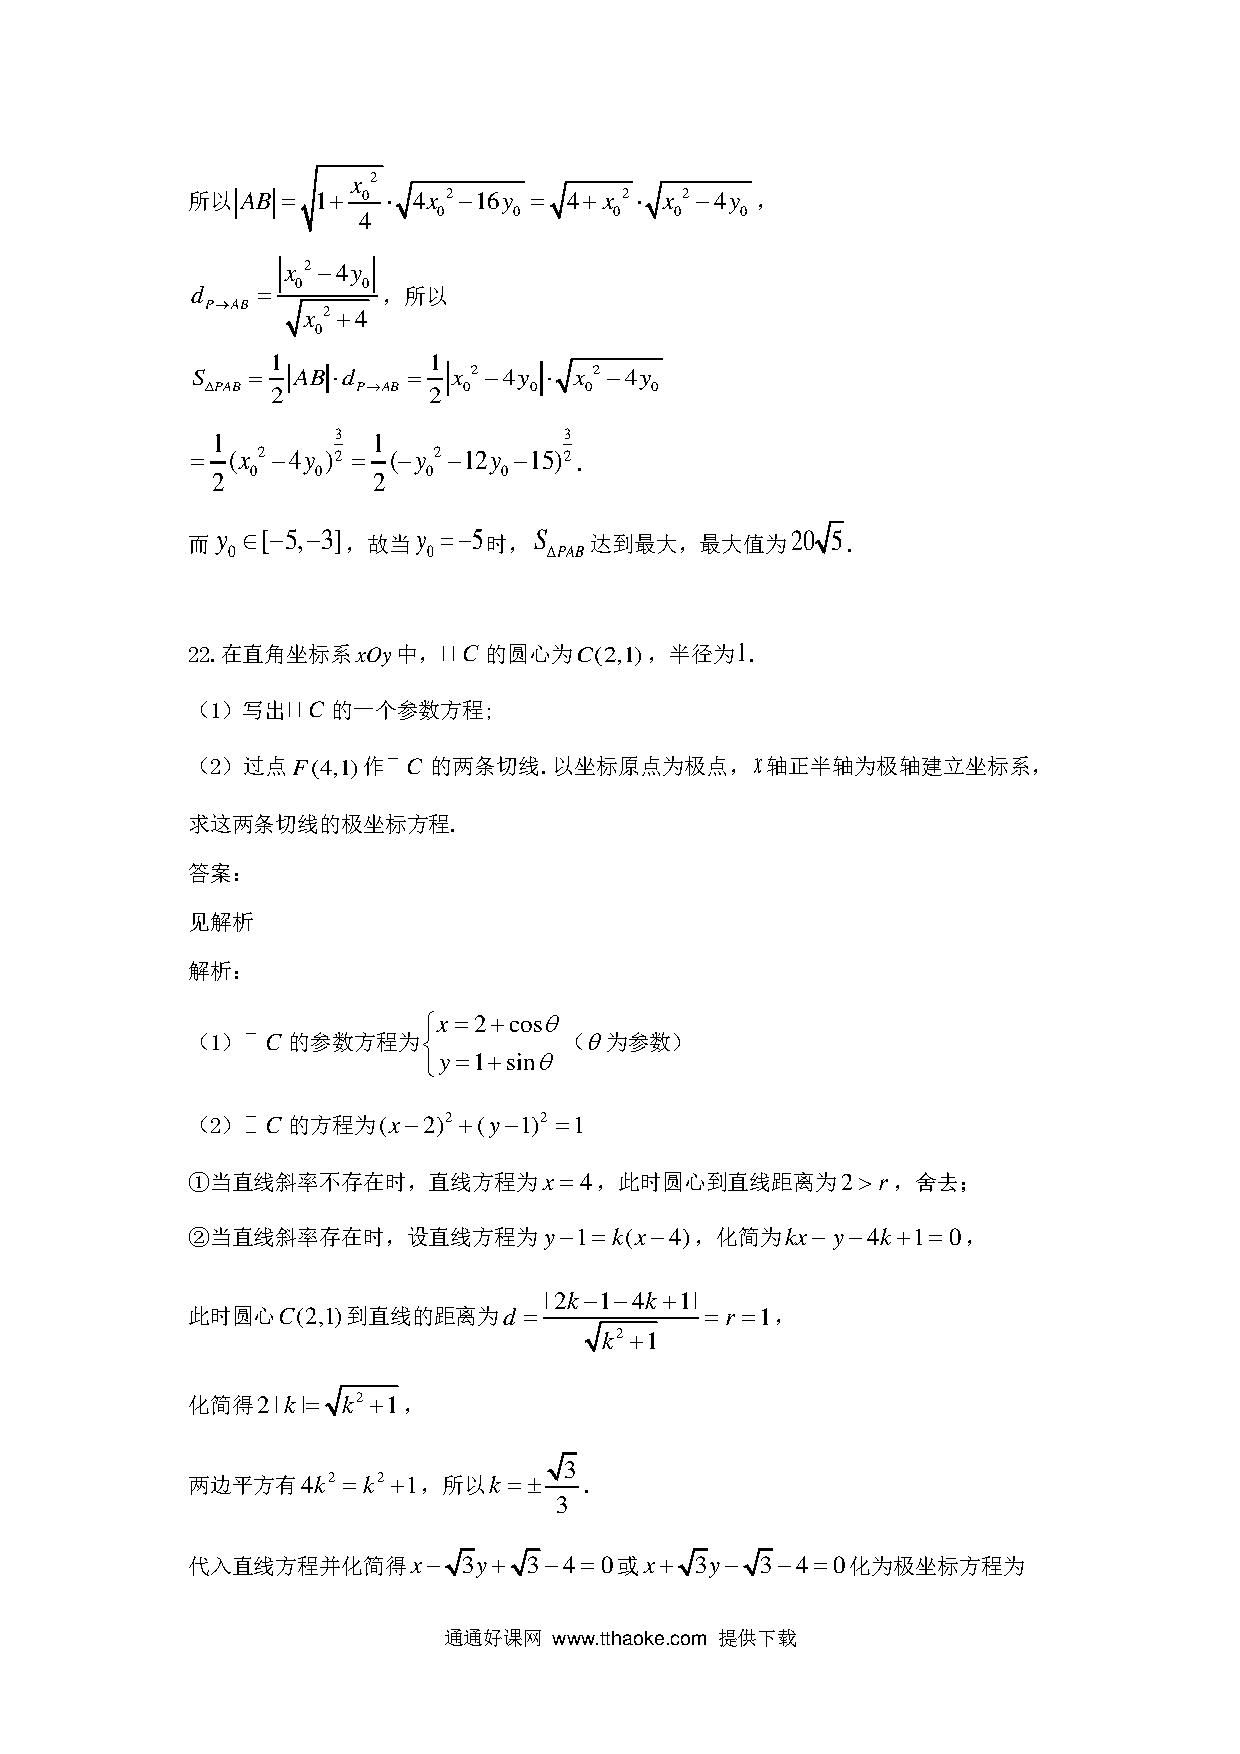 所以|AB|=√(1+x₀²/4)·√(4x₀²−16y₀)=√(4+x₀²)·√(x₀²−4y₀)，
d_{P→AB}=|x₀²−4y₀|/√(x₀²+4)，所以
S_{△PAB}=1/2|AB|·d_{P→AB}=1/2|x₀²−4y₀|·√(x₀²−4y₀)
=1/2(x₀²−4y₀)^{3/2}=1/2(−y₀²−12y₀−15)^{3/2}.
而y₀∈[−5,−3]，故当y₀=−5时，S_{△PAB}达到最大，最大值为20√5.
22.在直角坐标系xOy中，|| C 的圆心为C(2,1)，半径为1.
（1）写出|| C 的一个参数方程;
（2）过点F(4,1)作 C 的两条切线.以坐标原点为极点，x轴正半轴为极轴建立坐标系，
求这两条切线的极坐标方程.
答案：
见解析
解析：
（1） C 的参数方程为{x=2+cosθ y=1+sinθ（θ为参数）
（2） C 的方程为(x−2)²+(y−1)²=1
①当直线斜率不存在时，直线方程为x=4，此时圆心到直线距离为2>r，舍去；
②当直线斜率存在时，设直线方程为y−1=k(x−4)，化简为kx−y−4k+1=0，
此时圆心C(2,1)到直线的距离为d=|2k−1−4k+1|/√(k²+1)=r=1，
化简得2|k|=√(k²+1)，
两边平方有4k²=k²+1，所以k=±√3/3.
代入直线方程并化简得x−√3y+√3−4=0或x+√3y−√3−4=0化为极坐标方程为
通通好课网 www.tthaoke.com 提供下载